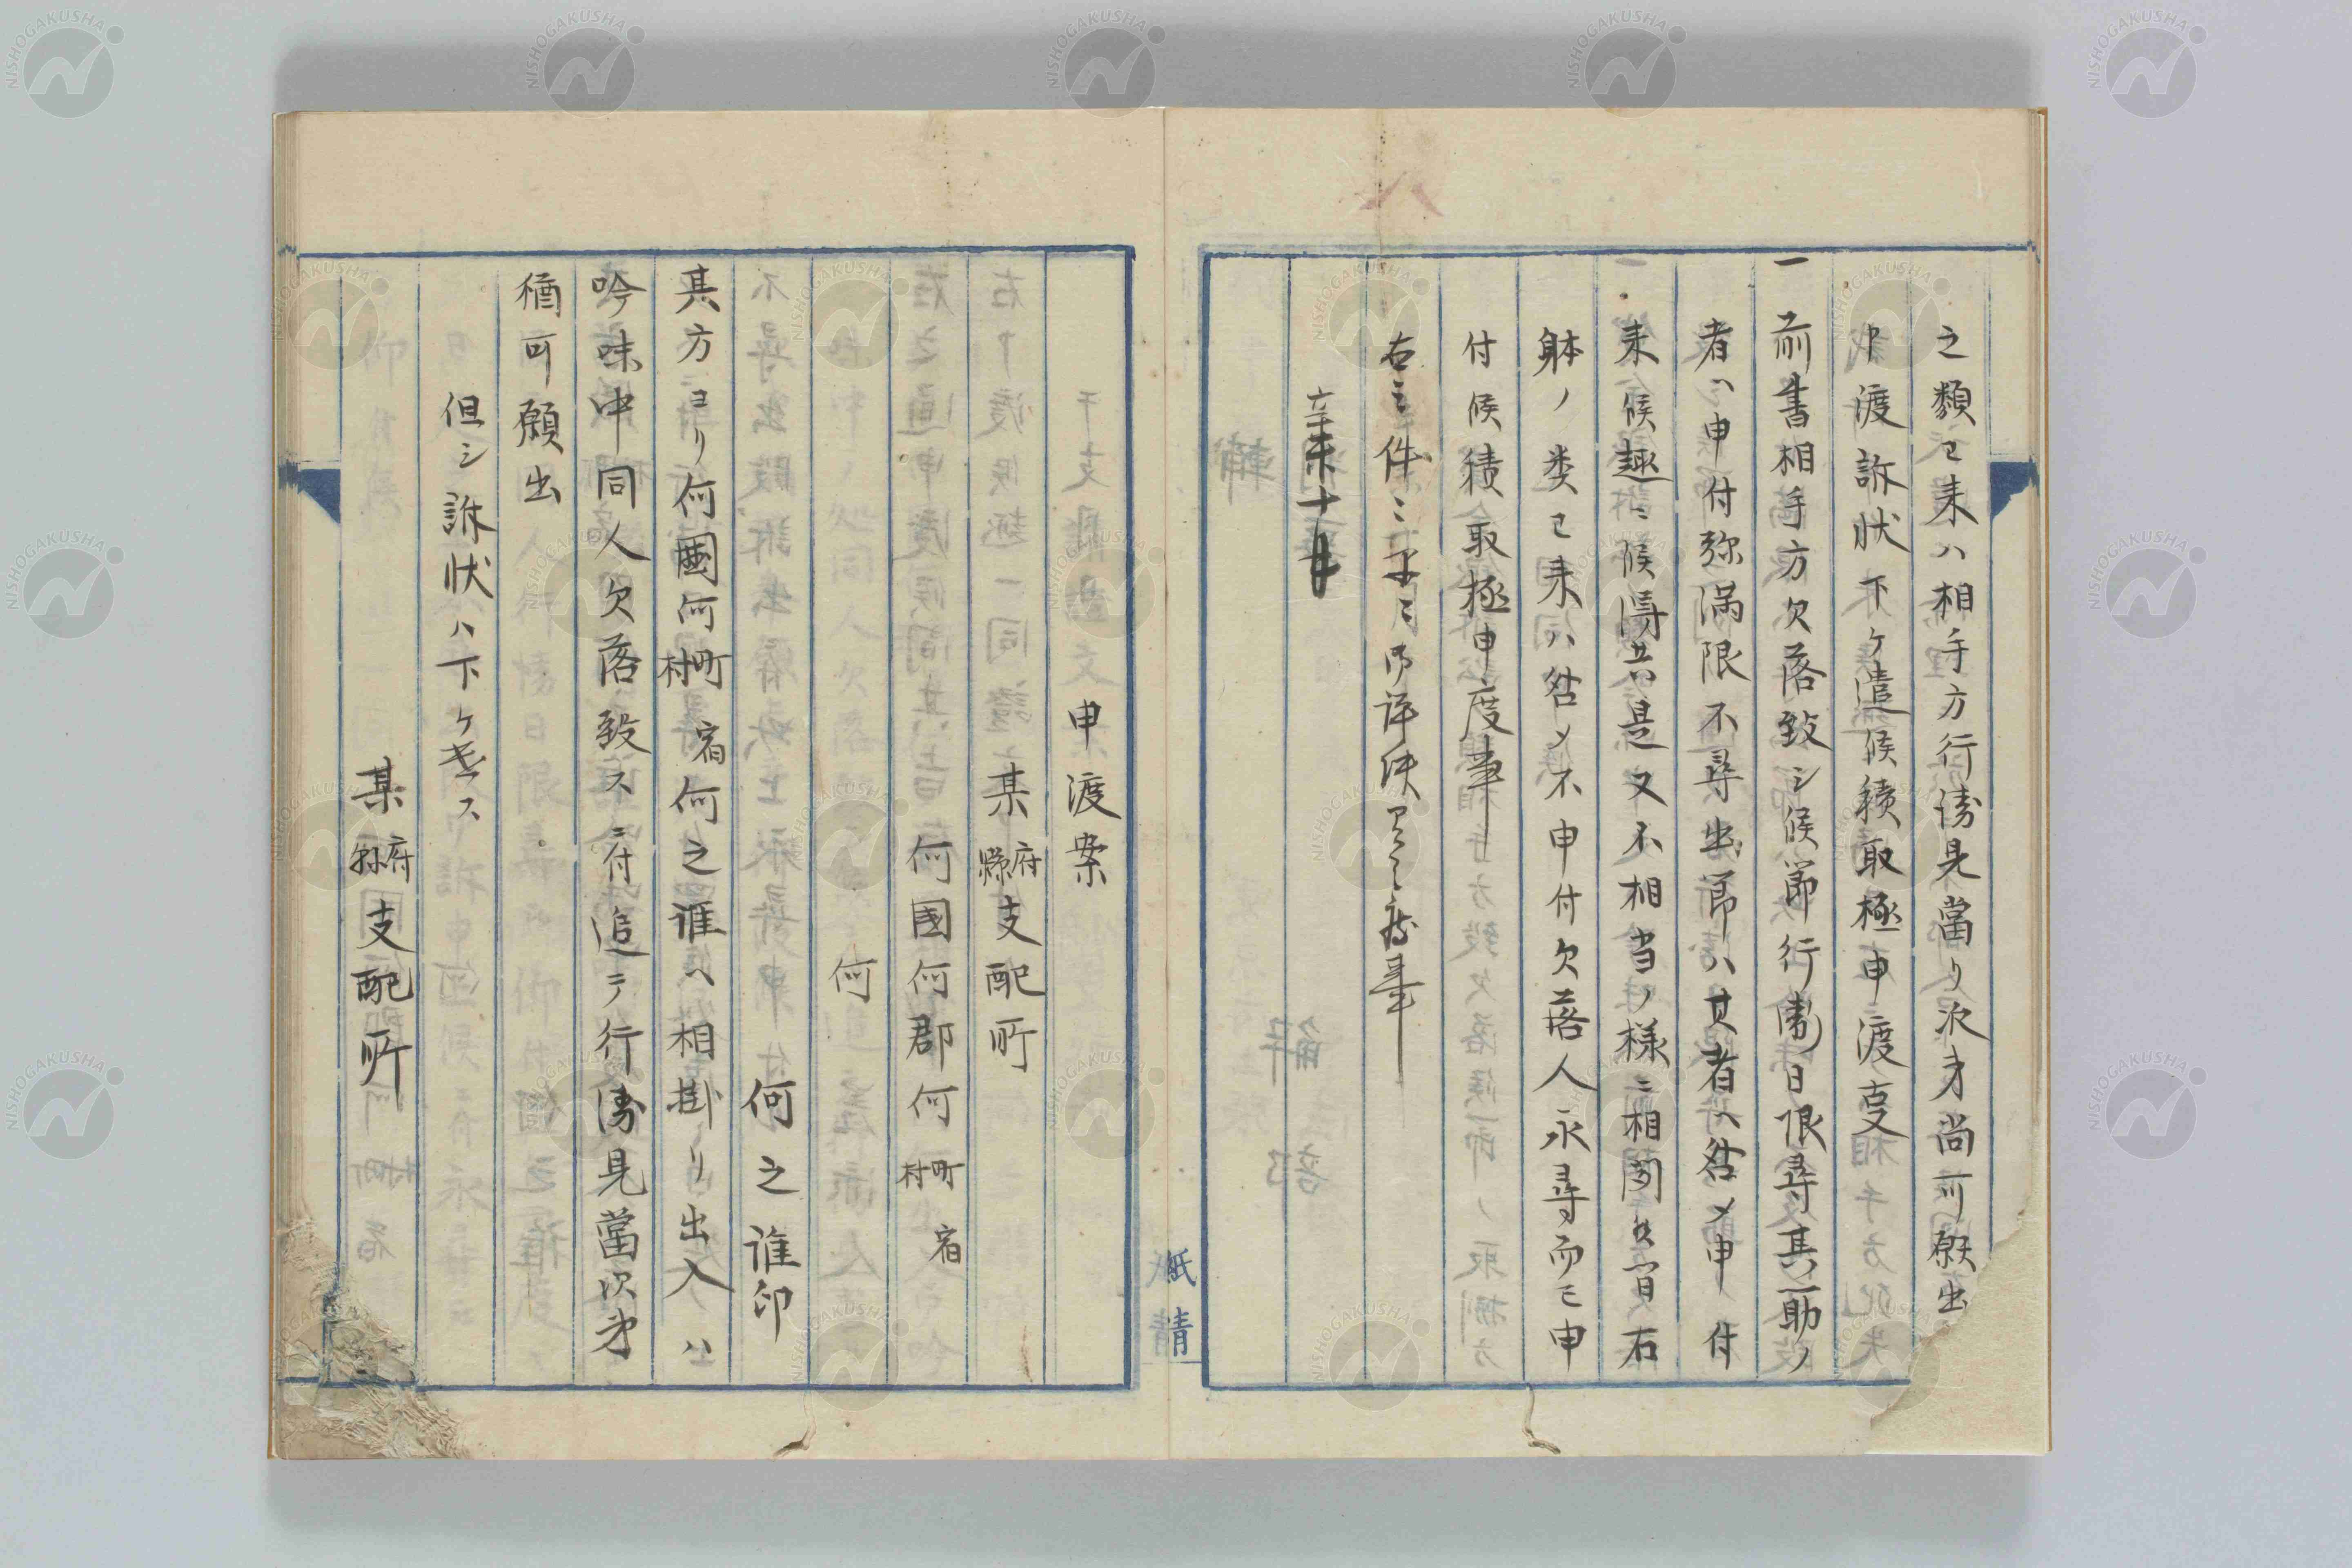 之類ヨリ来ハ相手方行衛見當リ次才尚可願出
申渡訴状下ケ遣候積取極申渡叓
一前書相手方欠落致シ候節行衛日限尋其一助ノ
者ハ申付弥満限不尋出節ハ其者ヘ咎メ申付
来候趣ニ候得共是又不相当ノ様ニ相聞候間右
躰ノ类ヨリ来ハ咎メ不申付欠落人永尋而已申
付候積取極申度事
右之件ミ
辛未十月
紙請
申渡案
某府縣支配所
何國何郡何町村宿
何
何之誰印
其方ヨリ何國何町村宿何之誰ヘ相掛リ出入ハ
吟味中同人欠落致スニ付追テ行衛見當次才
猶可願出
但シ訴状ハ下ケ遣ス
某府縣支配所
NISHOGAKUSHA